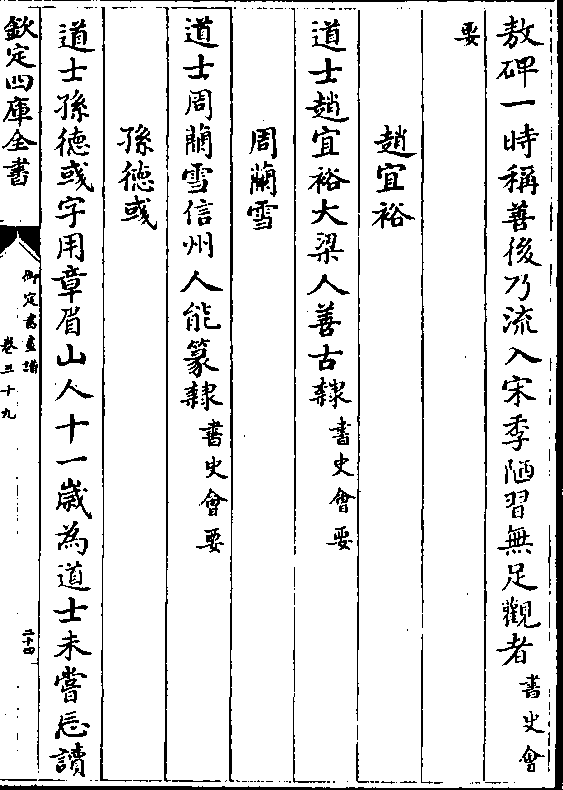 敖碑一時稱善後乃流入宋季陋習無足觀者書史會
要
趙宜裕
道士趙宜裕大梁人善古隸書史會要
周蘭雪
道士周蘭雪信州人能篆隸書史會要
孫德彧
道士孫德彧字用章眉山人十一歲為道士未嘗忘讀
欽定四庫全書
御定書畫譜
卷三十九
二十四